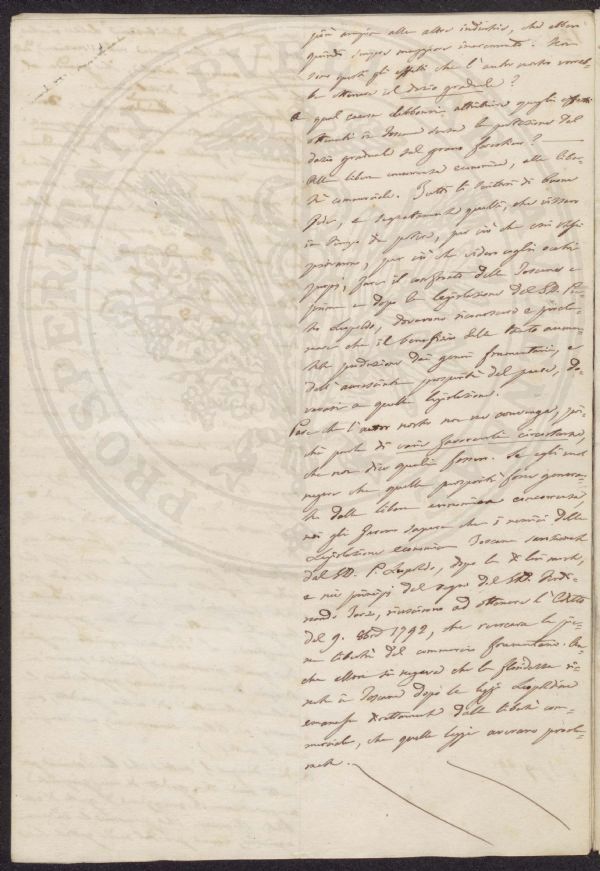 più ampia alle altre industrie, che ebber
quindi sempre maggiore incremento. Non
sono questi gli effetti che l'autor nostro vorreb-
be ottenere il dazio graduale?
A qual causa debbonsi attribuire quegli effetti
ottenuti in Toscana senza la protezione del
dazio graduale sul grano forestiero?
Alla libera concorrenza economica, alla liber-
tà commerciale. Tutti li scrittori di buona
fede, e segnatamente quelli, che vissero
in tempo da potere, per ciò che essi stessi
, per ciò che videro cogli occhi
propri, fare il confronto della Toscana e
prima e dopo la legislazione del G.D. Pie-
tro Leopoldo, dovettero riconoscere e procla-
mare che il beneficio della tanto aumen-
tata produzione dei generi frumentari, e
dell'accresciuta prosperità del paese, do-
vevasi a quella legislazione.
Pare che l'autor nostro non ne convenga, poi-
ché parla di varie favorevoli circostanze,
che non dice quali fossero. Se egli vuol
negare che quella prosperità fosse genera-
ta dalla libera economica concorrenza,
noi gli faremo sapere che i nemici della
Legislazione economica Toscana sanzionata
dal G.D. P. Leopoldo, dopo la di lui morte,
e nei principj del regno del G.D. Ferdi-
nando Terzo, riuscirono ad ottenere l'Editto
del 9. 8bre 1792, che revocava la pie-
na libertà del commercio frumentario. An-
che allora si negava che la floridezza ve-
nuta in Toscana dopo le leggi Leopoldine
emanasse direttamente dalla libertà com-
merciale, che quelle leggi avevano procla-
mata.